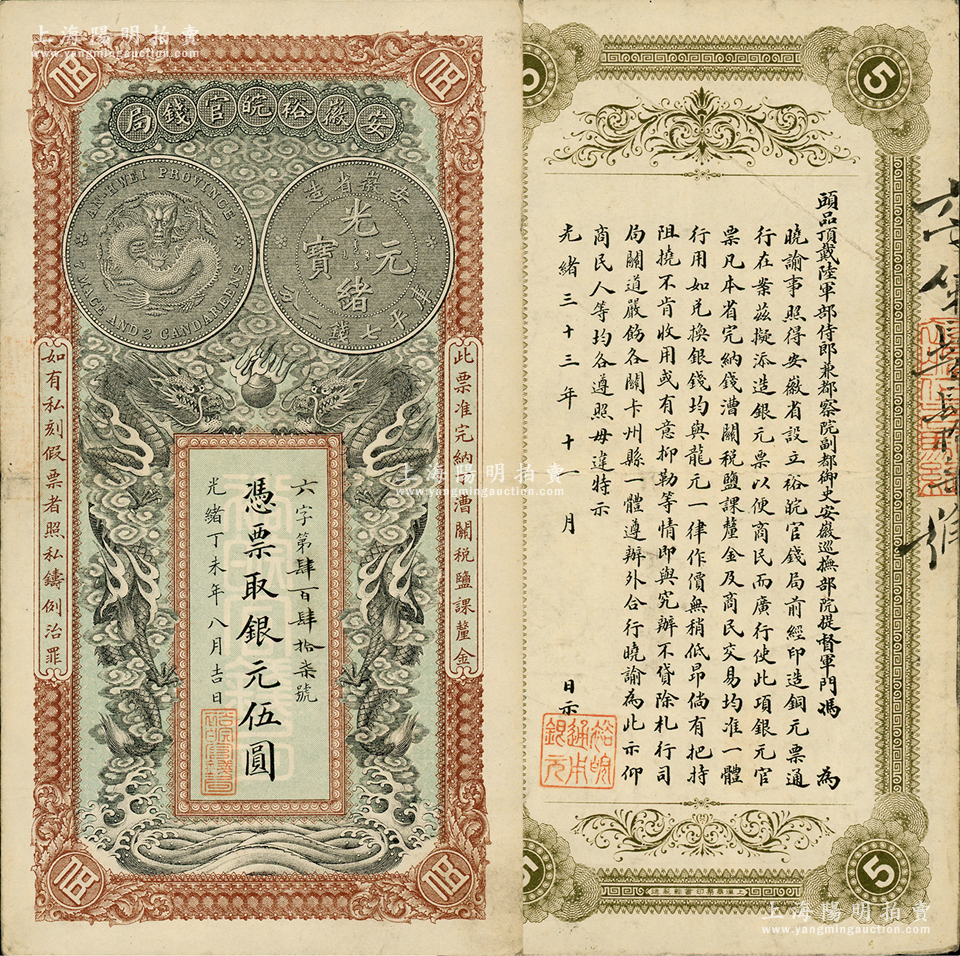 上海陽明拍賣
www.yangmingauction.com
安徽裕皖官錢局
伍
伍
AN-HWEI PROVINCE
7 MACE AND 2 CANDAREENS
安徽省造
光緒元寶
庫平七錢二分
此票准完納錢漕關税鹽課釐金
如有私刻假票者照私鑄例治罪
六字第肆百肆拾柒號
憑票取銀元伍圓
光緒丁未年八月吉日
伍
伍
5
5
頭品頂戴陸軍部侍郎兼都察院副都御史安徽巡撫部院提督軍門馮 為
曉諭事照得安徽省設立裕皖官錢局前經印造銅元票通
行在案茲擬添造銀元票以便商民而廣行使此項銀元官
票凡本省完納錢漕關税鹽課釐金及商民交易均准一體
行用如兑換銀錢均與龍元一律作價無稍低昂倘有把持
阻撓不肯收用或有意抑勒等情即與究辦不貸除札行司
局關道嚴飭各關卡州縣一體遵辦外合行曉諭為此示仰
商民人等均各遵照毋違特示
光緒三十三年十一月 日示
裕皖
通本
銀元
5
5
上海陽明拍賣
www.yangmingauction.com
上海陽明拍賣
www.yangmingauction.com